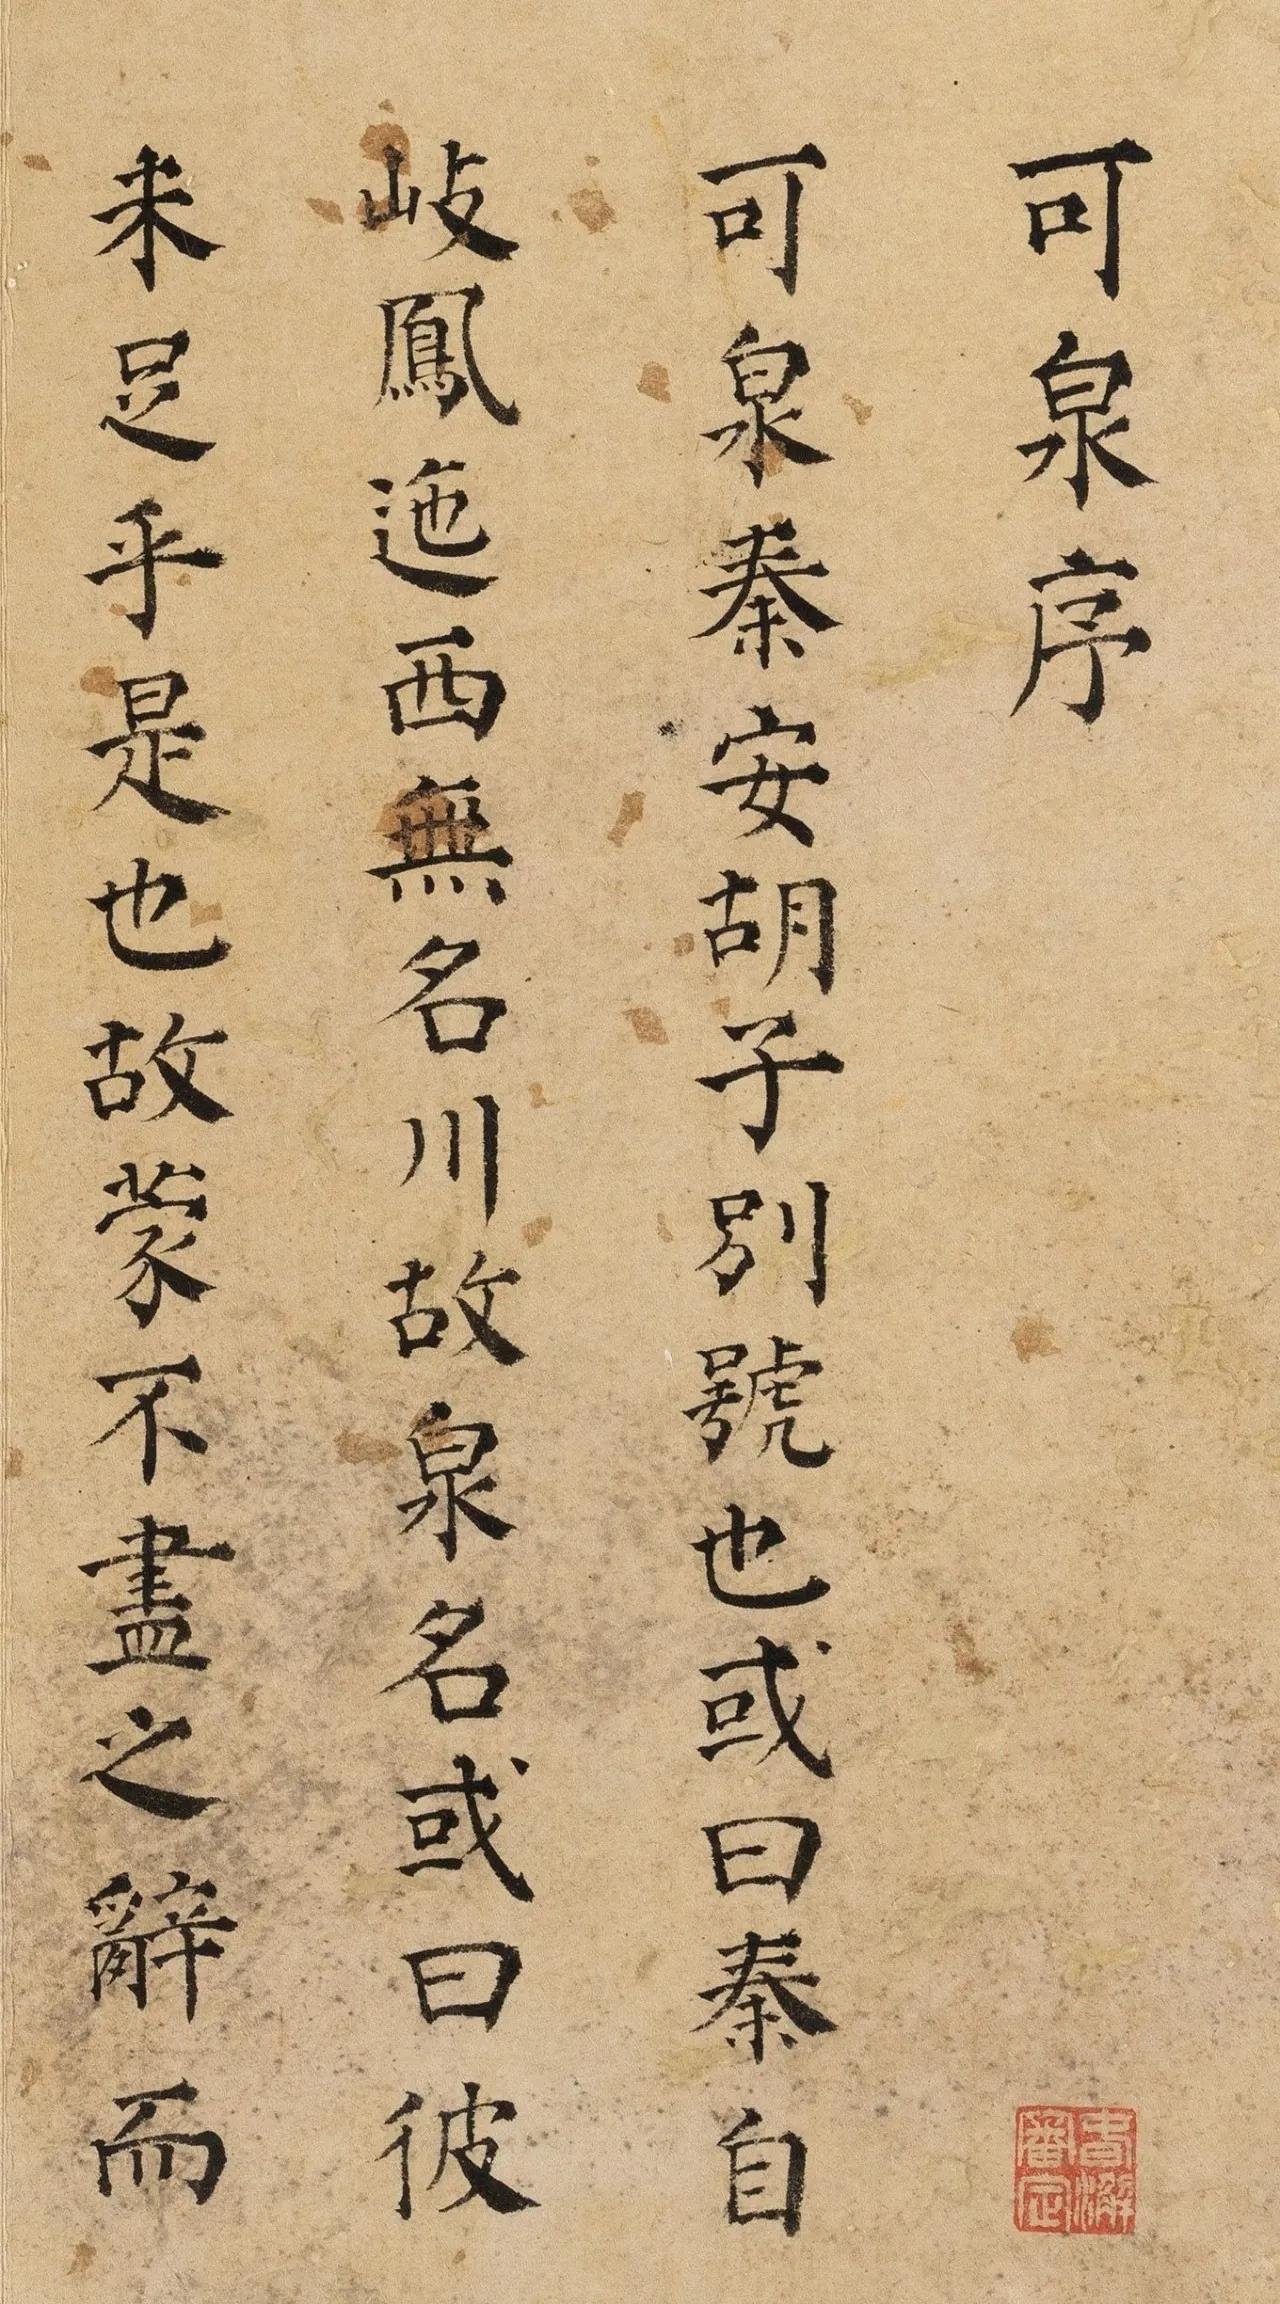 可泉序
可泉秦安胡子別號也或曰秦自
岐鳳迤西無名川故泉名或曰彼
未足乎是也故蒙不盡之辭而
審定